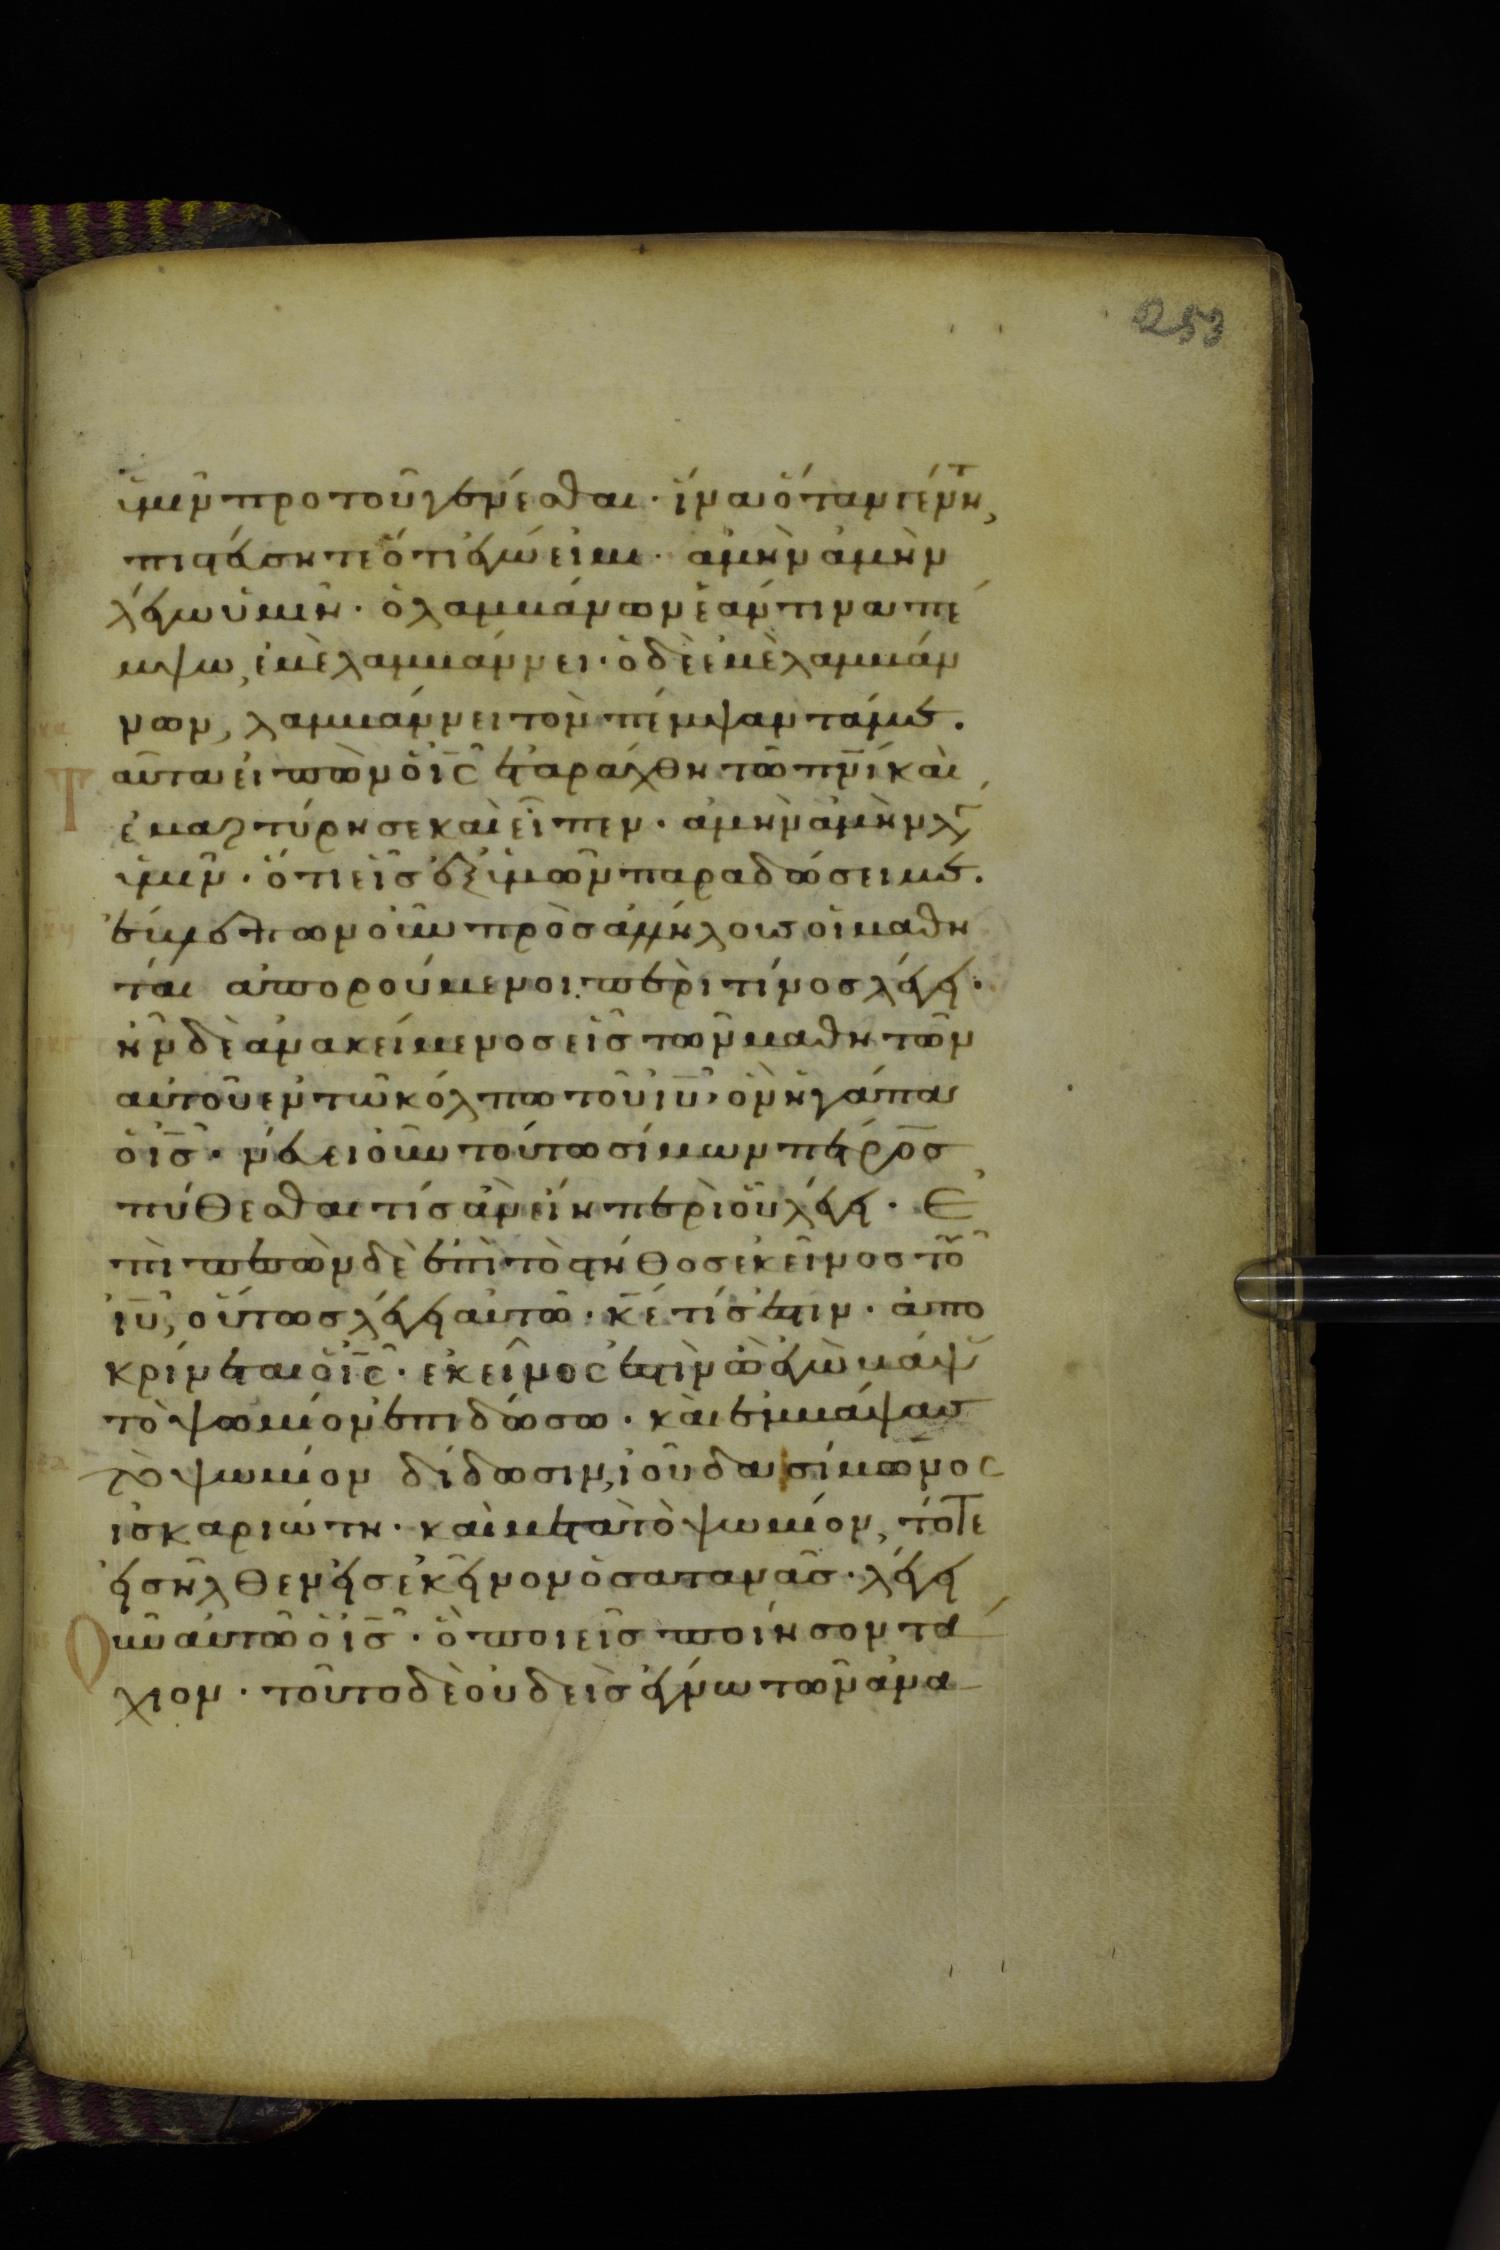 253
ὑμῖν προ τοῦ γενέσθαι · ἵνα ὅταν γένητ,
πιστεύσητε ὅτι ἐγώ εἰμι · ἀμὴν ἀμὴν
λέγω ὑμῖν · ὁ λαμβάνων ἐάν τινα πέ
μψω, ἐμὲ λαμβάνει · ὁ δὲ ἐμὲ λαμβάν
νων, λαμβάνει τὸν πέμψαντά με .
Ταῦτα εἰπὼν ὁ ι̅ς̅ ἐταράχθη τῶ π̅ν̅ι̅ καὶ
ἐμαρτύρησε καὶ εἶπεν · ἀμὴν ἀμὴν λέγ
ὑμῖν · ὅτι εἷς ἐξ ὑμῶν παραδώσει με .
ἔβλεπον οὖν πρὸς ἀλλήλους οἱ μαθη
ταί ἀπορούμενοι περὶ τίνος λέγει ·
ἦν δὲ ἀνακείμενος εἷς τῶν μαθητῶν
αὐτοῦ ἐν τῶ κόλπω τοῦ ι̅υ̅, ὃν ἠγάπα
ὁ ι̅ς̅ · νεύει οὖν τούτω σίμων πέτρος
πυθέσθαι τίς ἂν εἴη περὶ οὗ λέγει · Ἐ
πιπεσὼν δὲ ἐπὶ τὸ στῆθος ἐκεῖνος τοῦ
ι̅υ̅, οὕτως λέγει αὐτῶ · κ̅ε̅ τίς ἐστιν · ἀπο
κρίνεται ὁ ι̅ς̅ · ἐκεῖνός ἐστιν ὧ ἐγὼ βάψας
τὸ ψωμίον ἐπιδώσω · καὶ ἐμβάψας
τὸ ψωμίον δίδωσιν, ἰούδα σίμωνος
ἰσκαριώτη · καὶ μετὰ τὸ ψωμίον, τότε
εἰσῆλθεν εἰς ἐκεῖνον ὁ σατανᾶς · λέγει
Οὖν αὐτῶ ὁ ι̅ς̅ · ὃ ποιεῖς ποίησον τά
χιον · τοῦτο δὲ οὐδεὶς ἔγνω τῶν ἀνα